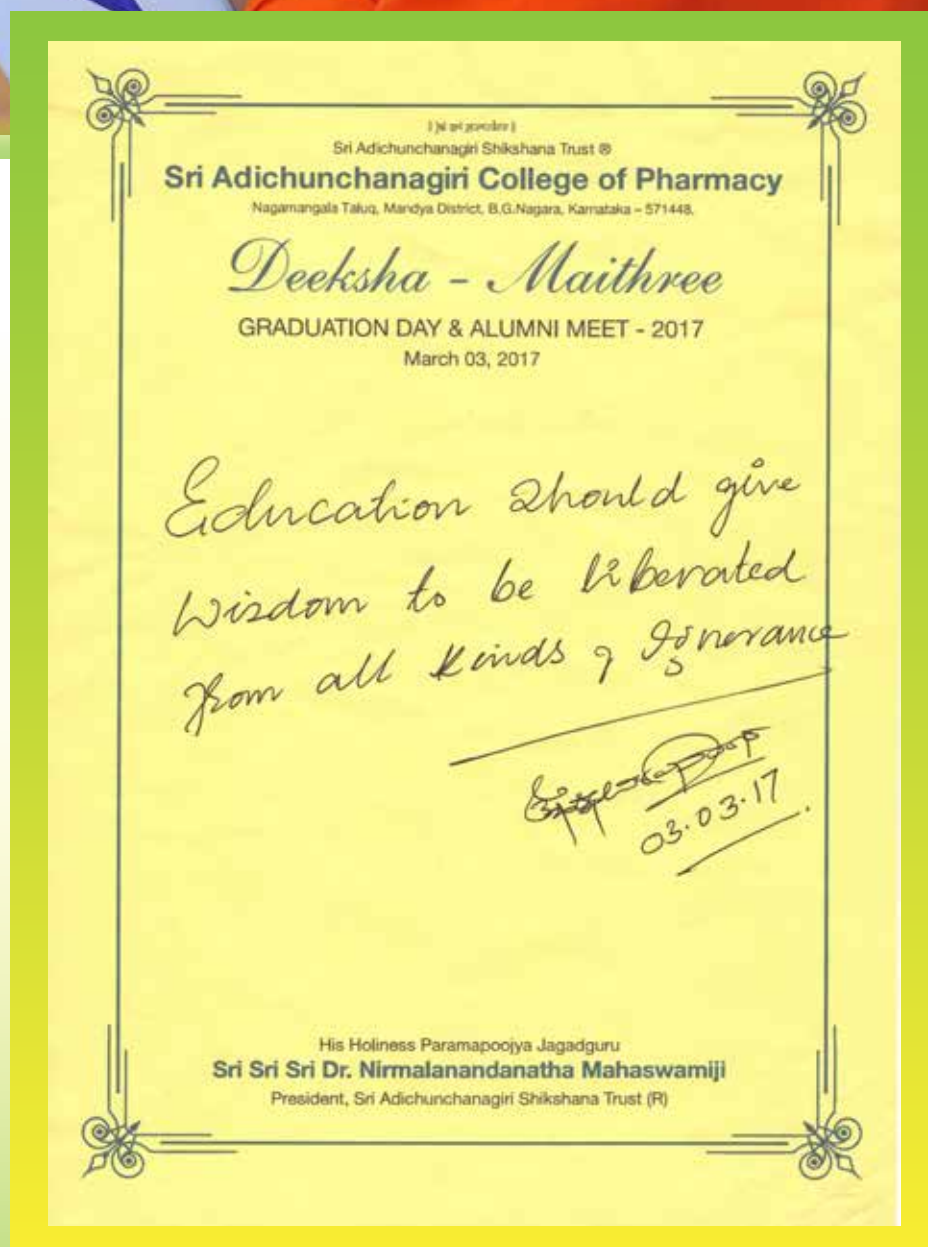 Sri Adichunchanagiri Shikshana Trust ®
Sri Adichunchanagiri College of Pharmacy
Nagamangala Taluq, Mandya District, B.G.Nagara, Karnataka – 571448.
Deeksha - Maithree
GRADUATION DAY & ALUMNI MEET - 2017
March 03, 2017
Education should give
Wisdom to be liberated
from all kinds of Ignorance
03.03.17
His Holiness Paramapoojya Jagadguru
Sri Sri Sri Dr. Nirmalanandanatha Mahaswamiji
President, Sri Adichunchanagiri Shikshana Trust (R)